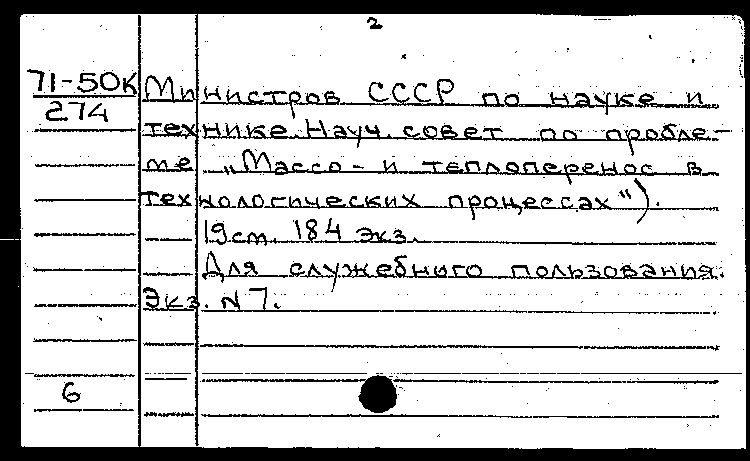 2
71-50К
274
Министров СССР по науке и
технике. Науч. совет по пробле-
ме „Массо- и теплоперенос в
технологических процессах").
19 ст. 184 экз.
Для служебного пользования.
Экз. N 7.
6